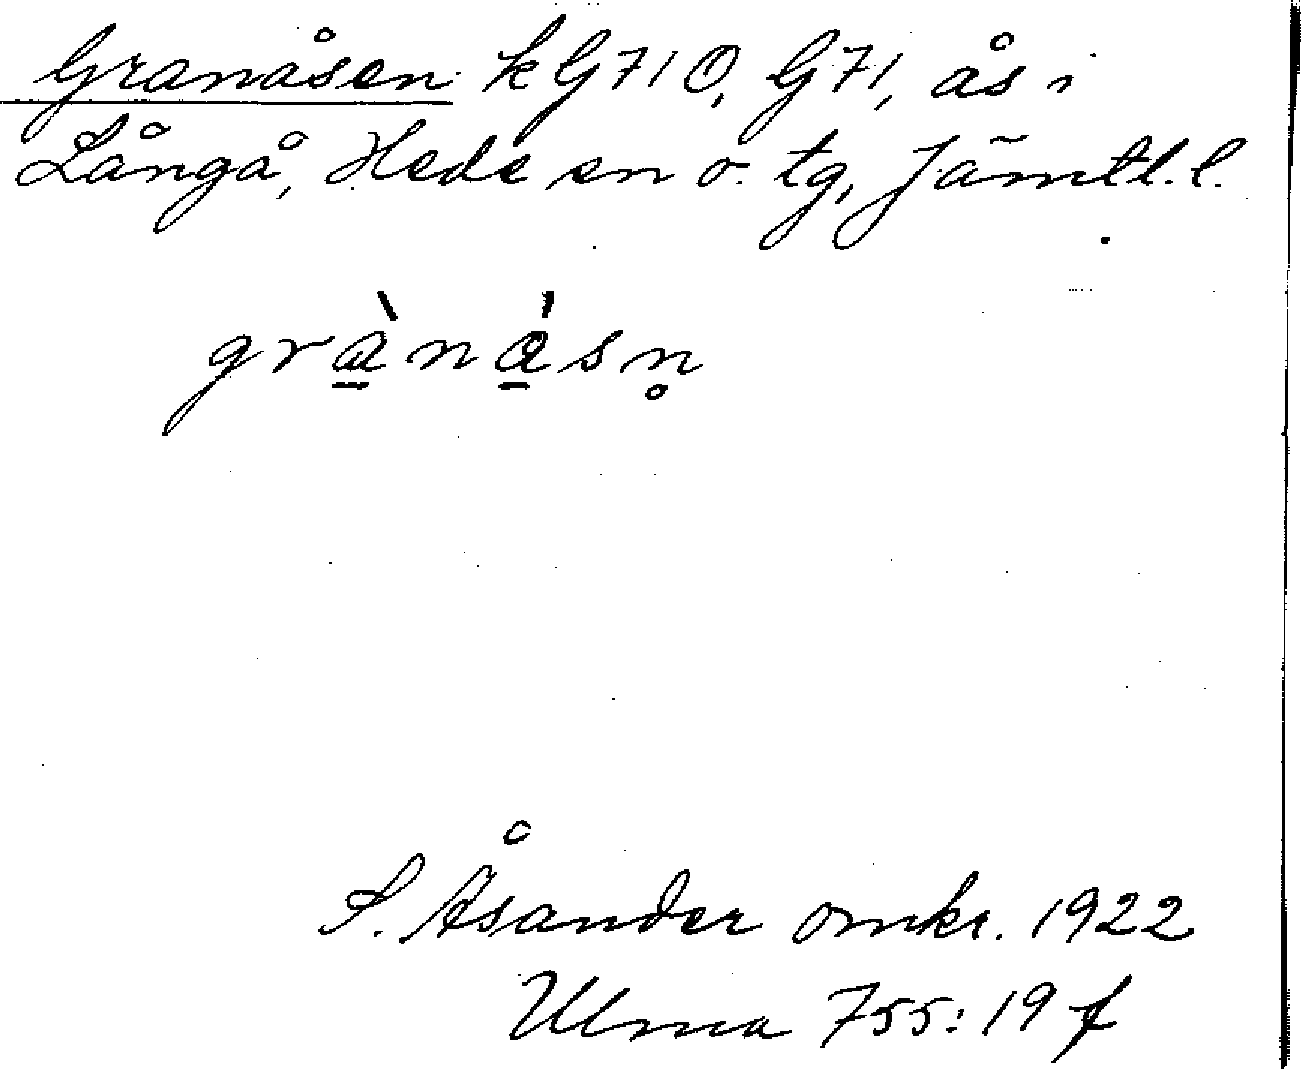 Granåsen kG710, G71, ås i
Långå, Hede sn o. tg, Jämtl.l.
grà̱ná̱sn̥
S. Åsander omkr. 1922
Ulma 755:19 f